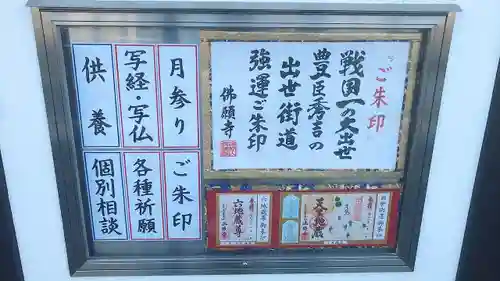 ご朱印
戦国一の大出世
豊臣秀吉の
出世街道
強運ご朱印
佛願寺
月参り
写経・写仏
供養
ご朱印
各種祈願
個別相談
六地蔵尊